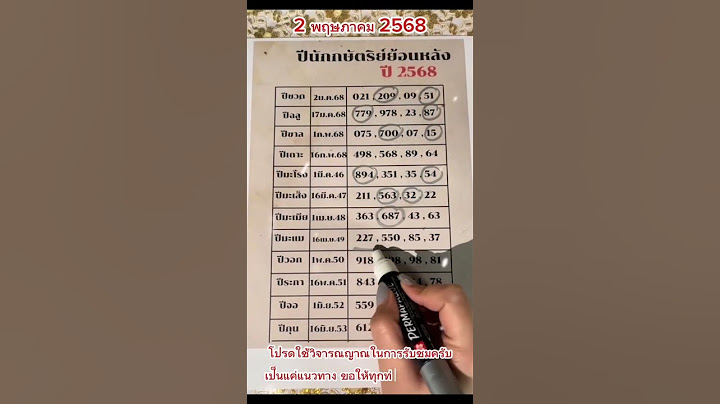 2 พฤษภาคม 2568
ปีนักกษัตริย์ย้อนหลัง
ปี 2568
ปีชวด 2ม.ค.68 021 , 209 , 09 , 51
ปีฉลู 17ม.ค.68 779 , 978 , 23 , 87
ปีขาล 1ก.พ.68 075 , 700 , 07 , 15
ปีเถาะ 16ก.พ.68 498 , 568 , 89 , 64
ปีมะโรง 1มี.ค.46 894 , 351 , 35 , 54
ปีมะเส็ง 16มี.ค.47 211 , 563 , 32 , 22
ปีมะเมีย 1เม.ย.48 363 , 687 , 43 , 63
ปีมะแม 16เม.ย.49 227 , 550 , 85 , 37
ปีวอก 1พ.ค.50 918 98 , 81
ปีระกา 16พ.ค.51 843 78
ปีจอ 1มิ.ย.52 559
ปีกุน 16มิ.ย.53
PERMA
โปรดใช้วิจารณญาณในการรับชมครับ
เป็นแค่แนวทาง ขอให้ทุกท่